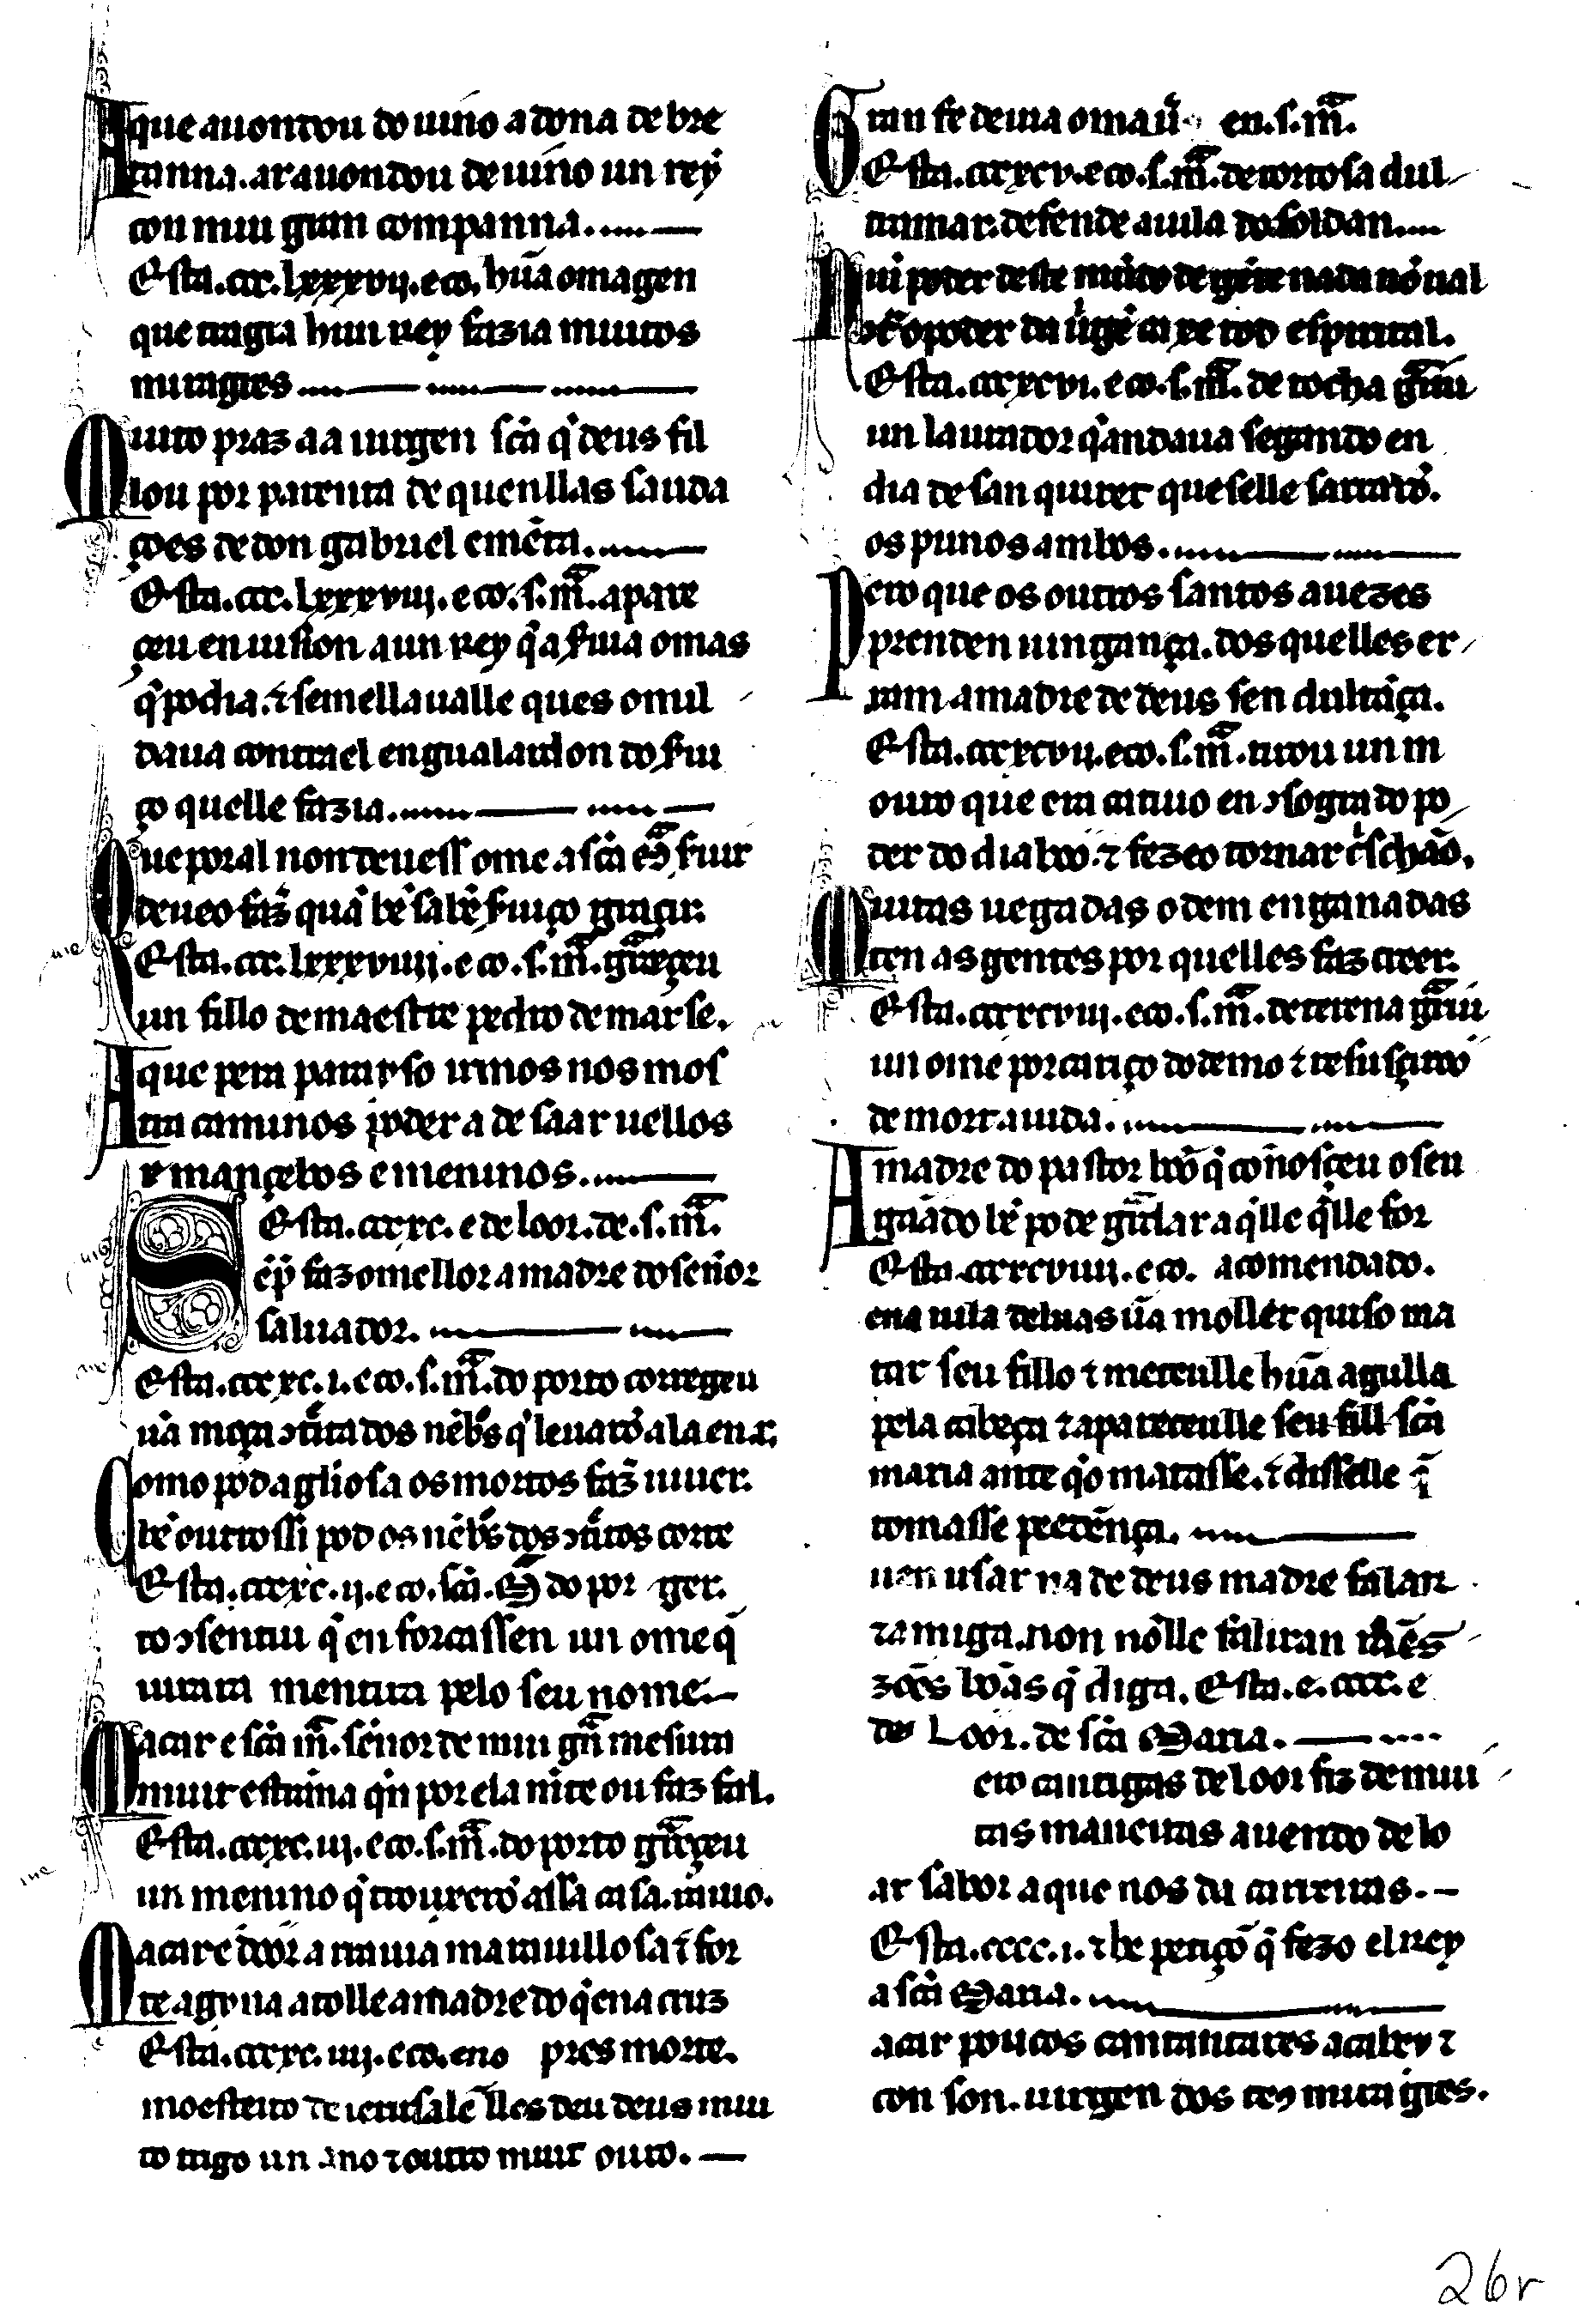 A que auondou do uino a dona de bre
tanna. ar auondou de uino un rey
con mui gran companna.
Esta .ccc.lxxxvij. e co. hũa omagen
que tragia hun rey fazia muitos
miragres
Muito praz aa uirgen sc̃a q̃ deus fil
lou por parenta de quen llas sauda
ções de don gabriel emẽta.
Esta .ccc.lxxxviij. e co. s. m̃a. apare
çeu en uision a un rey q̃ a s̃uia o mas
q̃ podia. ⁊ semellaualle ques omil
daua contra el en gualardon do s̃ui
ço quelle fazia.
Que por al non deuess ome a sc̃a m̃a s̃uir
deueo faz̃ quã bẽ sabẽ s̃uiço graçir.
Esta .ccc.lxxxviiij. e co. s. m̃a. guareçeu
un fillo de maestre pedro de marse.
A que pera parayso irmos nos mos
tra caminos poder a de saar uellos
e mançebos e meninos.
Esta .cccxc. e de loor. de. s. m̃a.
Sẽp̃ faz o mellor a madre do señor
saluador.
Esta .cccxc.i. e co. s. m̃a. do porto corregeu
ũa moça ↄtreita dos nẽbr̃s q̃ leuarõ ala en r̃.
Como pod a gliosa os mortos faz̃ uiuer.
bẽ outrossi pod os nẽbr̃s dos ↄtreitos corre
Esta .cccxc.ij. e co. sc̃a. M̃a do por ger.
to ↄsentiu q̃ en forcassen un ome q̃
iurara mentira pelo seu nome.
Macar e sc̃a m̃a. señor de mui gr̃a mesura
muit estraina q̃n por ela mẽte ou faz fal.
Esta .cccxc.iij. e co. s. m̃a. do porto guareçeu
un menino q̃ trouxerõ a ssa casa. rauio.
Macar e door a rauia marauillosa ⁊ for
te agỹna a tolle a madre do q̃ ena cruz
Esta .cccxc.iiij. e co. eno pres morte.
moesteiro de ierusalẽ lles deu deus mui
to trigo un ano ⁊ outro muit ouro.
Gran fe deuia om auer en. s. m̃a.
Esta .cccxcv. e co. s. m̃a. de tortosa dul
tramar. defende a uila do soldan.
Nui poder deste mũdo de gẽte nada nõ ual
ↄtra o poder da uirgẽ ca xe tod espirital.
Esta .cccxcvi. e co. s. m̃a. de rocha guariu
un laurador q̃ andaua segando en
dia de san quirez que selle sarrarõ.
os punos ambos.
Pero que os outros santos a uezes
prenden uingança. dos quelles er
ram. a madre de deus sen dultãça.
Esta .cccxcvij. e co. s. m̃a. tirou un m
ouro que era catiuo en ↄsogra do po
der do diaboo. ⁊ fezeo tornar cr̃schão.
Muitas uegadas o dem enganadas
ten as gentes por quelles faz creer.
Esta .cccxcviij. e co. s. m̃a. de terena guariu
un ome por cariço do demo ⁊ resusçitoo
de mort a uida.
A madre do pastor bõo q̃ coñosçeu o seu
guãdo bẽ pode guardar aq̃lle q̃lle for
Esta .cccxcviiij. e co. acomendado.
ena uila deluas ũa moller quiso ma
tar seu fillo ⁊ meteulle hũa agulla
pela cabeça ⁊ apareceulle seu fill sc̃a
maria ante q̃o matasse. ⁊ disselle q̃
tomasse peedẽnça.
uen usar na de deus madre falar
⁊ amiga. non nõlle faliran
zões bõas q̃ diga. Esta. e. cccc. e
de Loor. de sc̃a Maria.
ero cantigas de loor fiz de mui
tas maneiras auendo de lo
ar sabor a que nos dá carreiras.
Esta .cccc.i. ⁊ he petiçõ q̃ fezo el rey
a sc̃a Maria.
acar poucos cantares acabey ⁊
con son. uirgen dos teus miragres.
26r